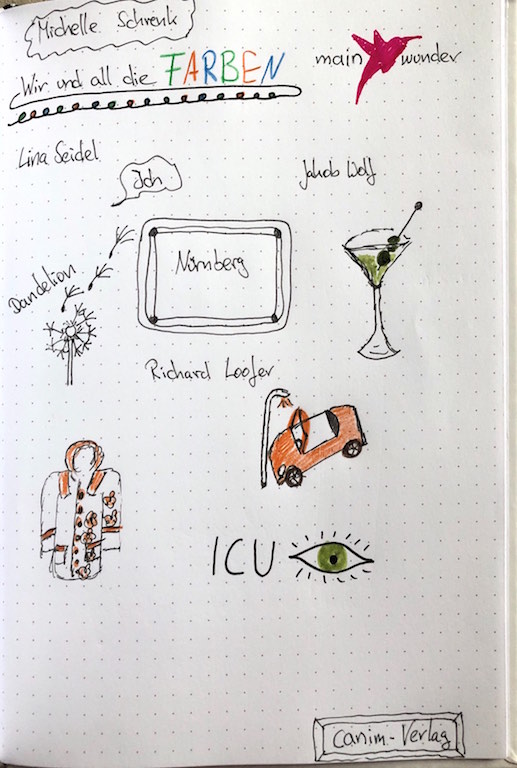 Michelle Schrenk
Wir und all die FARBEN
main wunder
Lina Seidel
Ich
Jakob Wolf
Nürnberg
Dandelion
Richard Loofer
ICU
canim-Verlag